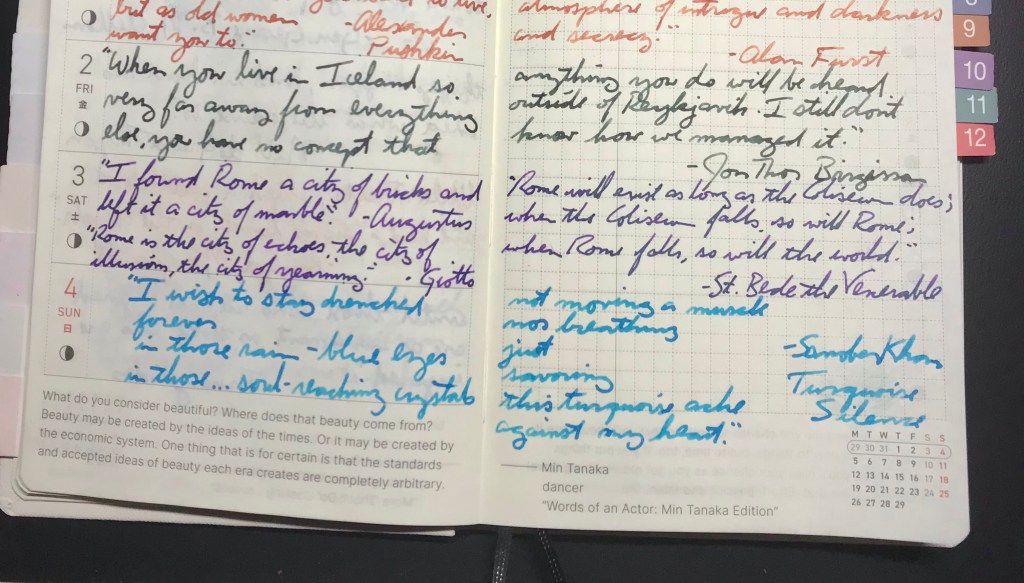 but as old women -Alexander
want you to." Pushkin
2
FRI
金
"When you live in Iceland so
very far away from everything
else, you have no concept that
3
SAT
土
"I found Rome a city of bricks and
left it a city of marble." -Augustus
"Rome is the city of echoes, the city of
illusions, the city of yearning." - Giotto
4
SUN
日
"I wish to stay drenched
forever
in those rain-blue eyes
in those... soul-reaching crystals
What do you consider beautiful? Where does that beauty come from?
Beauty may be created by the ideas of the times. Or it may be created by
the economic system. One thing that is for certain is that the standards
and accepted ideas of beauty each era creates are completely arbitrary.
atmosphere of intrigue and darkness
and secrecy."
-Alan Furst
anything you do will be heard
outside of Reykjavik. I still don't
know how we managed it."
-Jon Thor Birgisson
"Rome will exist as long as the Coliseum does;
when the Coliseum falls, so will Rome;
when Rome falls, so will the world."
-St. Bede the Venerable
not moving a muscle
nos breathing
just
savoring
this turquoise ache
against my heart."
-Sanober Khan
Turquoise
Silence
Min Tanaka
dancer
"Words of an Actor: Min Tanaka Edition"
M T W T F S S
29 30 31 1 2 3 4
5 6 7 8 9 10 11
12 13 14 15 16 17 18
19 20 21 22 23 24 25
26 27 28 29
9
10
11
12